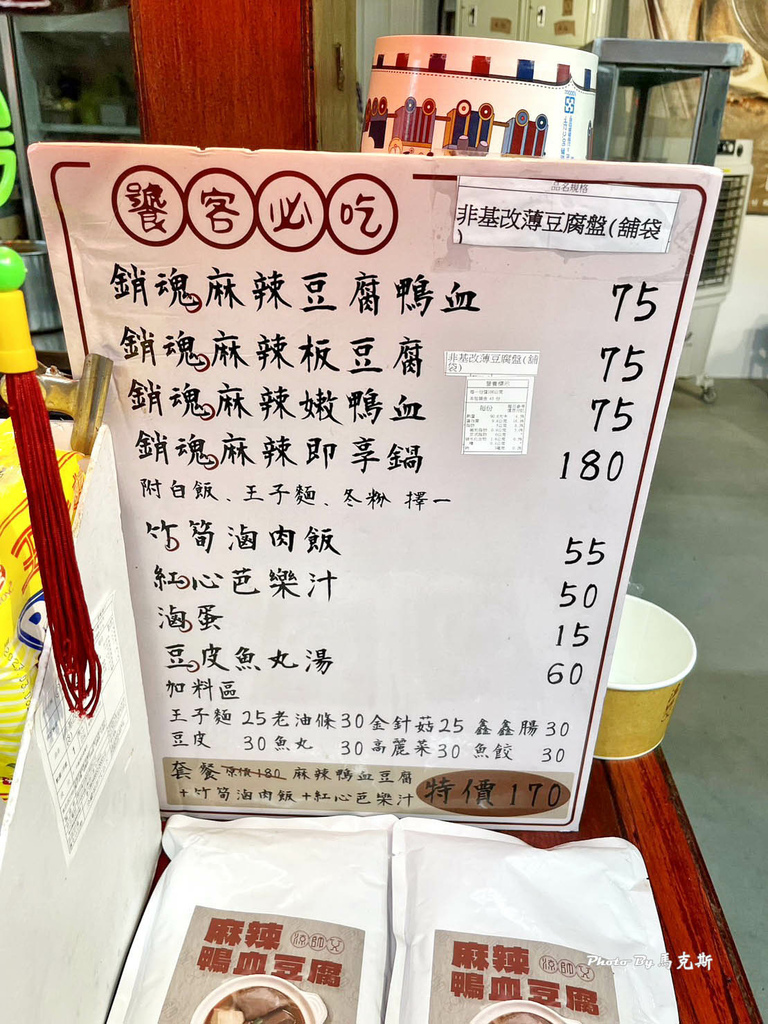 饕客必吃
品名規格
非基改薄豆腐盤(舖袋
)
銷魂麻辣豆腐鴨血 75
銷魂麻辣板豆腐 75
非基改薄豆腐盤(舖
袋)
銷魂麻辣嫩鴨血 75
銷魂麻辣即享鍋 180
附白飯、王子麵、冬粉 擇一
竹筍滷肉飯 55
紅心芭樂汁 50
滷蛋 15
豆皮魚丸湯 60
加料區
王子麵 25 老油條 30 金針菇 25 鑫鑫腸 30
豆皮 30 魚丸 30 高麗菜 30 魚餃 30
套餐 原價180 麻辣鴨血豆腐
+竹筍滷肉飯+紅心芭樂汁 特價 170
麻辣
鴨血豆腐
麻辣
鴨血豆腐
Photo By 馬克斯